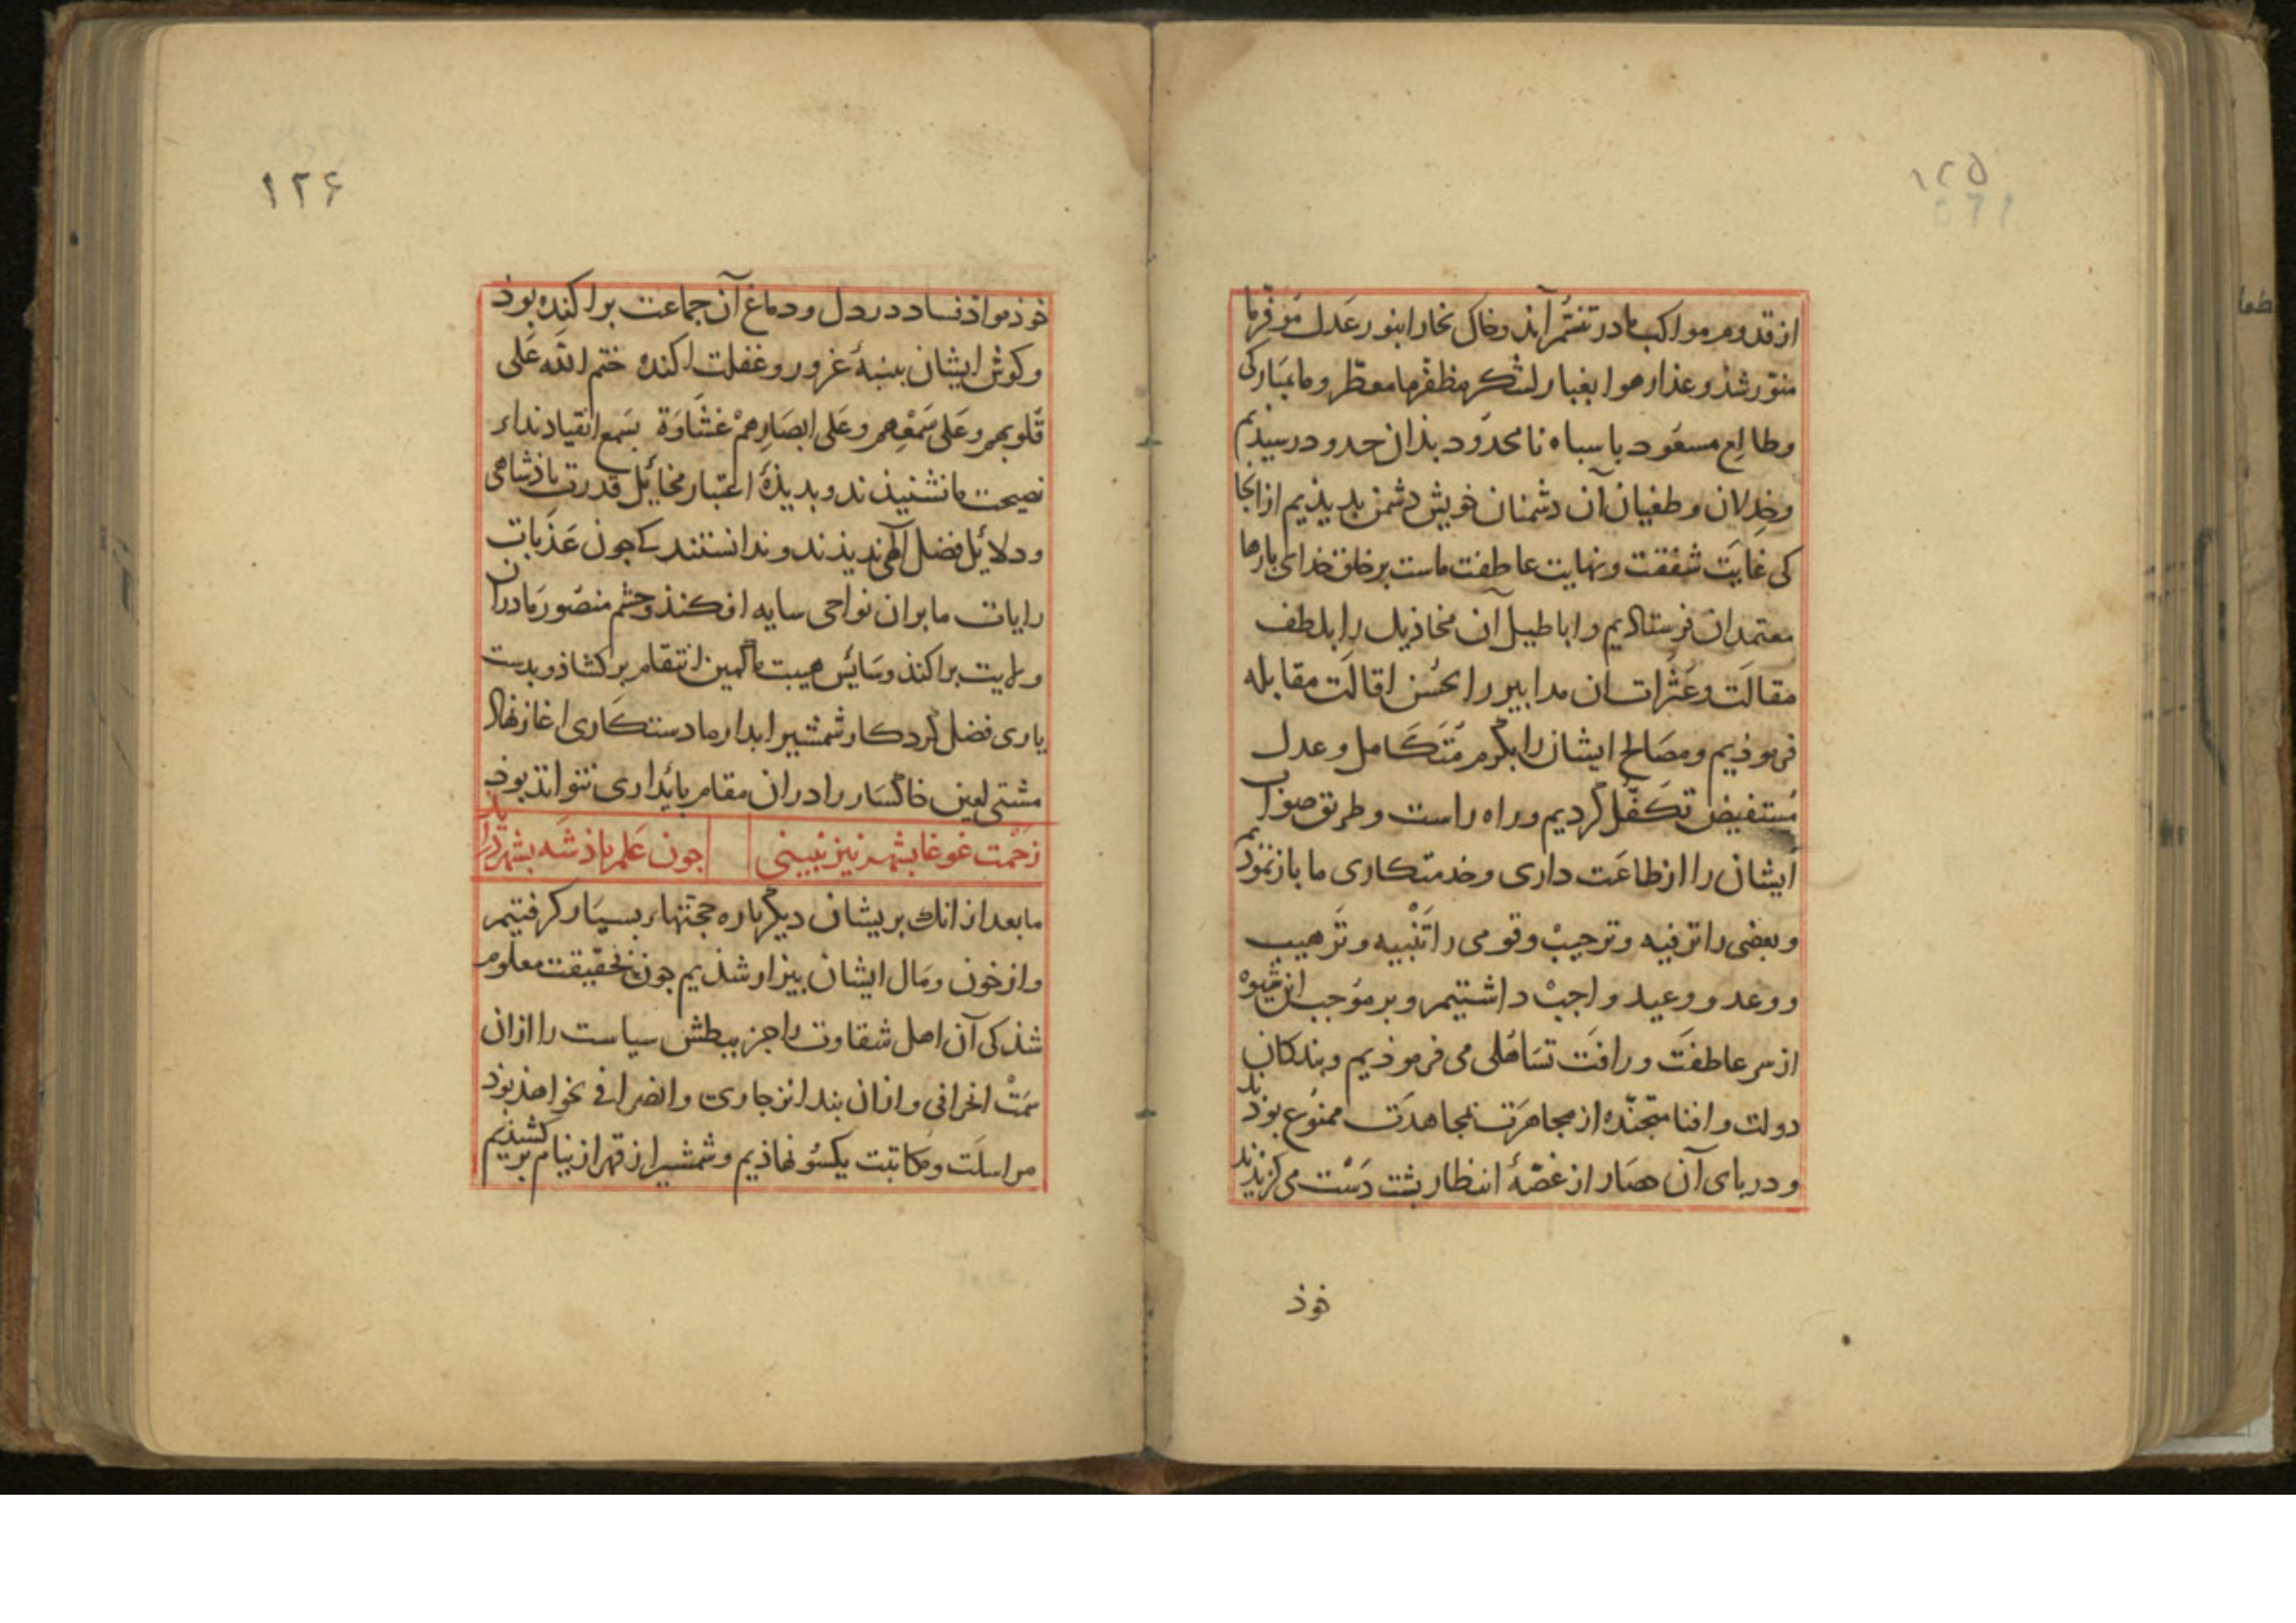 ۱۲۵
از قدوم مواکب ما در تنسّم آمد و خاک بخارا بنور عَدل مُوفّر ما
منوّر شذ و عذار هوا بغبار لشکر مظفّر ما معطّر و ما بمبارکی
و طالِع مسعُود با سباه نامحدُود بذان حدود رسیذیم
و خِذلان و طغیان آن دشمنان خویش دشمن بدیذیم از انجا
کی غایَت شفقت و نهایت عاطفت ماست بر خلق خدای بارها
معتمدان فرستاذیم و اباطیل آن مخاذیل را بلطف
مقالَت و عَثَرات ان مدابیر را بحُسن اقالَت مقابله
فرموذیم و مصَالح ایشان را بکرم مُتَکامل و عدل
مُستفیض تکَفّل کردیم و راه راست و طریق صواب
ایشان را از طاعَت داری و خدمتکاری ما باز نموذیم
و بعضی را ترفیه و ترحیبْ و قومی را تَنْبیه و تَرهیب
و وعد و وعید واجبْ داشتیم و بر مُوجب این شیوهْ
از سر عاطفَت و رافَت تسَاهُلی می فرموذیم و بندکان
دولت و افنا متجنّده از مجاهرَت بمجاهدَت ممنُوع بوذند
و در بای آن حصَار از غصّهٔ انتظار بشت دَسْت می کزیذند
خوذ
۱۲۶
خوذ مواذ فساد در دل و دماغ آن جماعت براکنده بوذ
و کوش ایشان ببنبهٔ غرور و غفلت اکنده ختم الله عَلی
قُلوبهم و عَلی سَمْعِهم و عَلی ابصَارِهِمْ غشَاوَة بسَمع انقیاد نداء
نصیحت ما نشنیذند و بدیذهٔ اعتبار مخائِل قدرت باذشاهی
و دلائِل فضل الهی ندیذند و ندانستند که جون عَذَبات
رایات ما بران نواحی سایه افکنذ و حشم منصُور ما دران
ولایت براکنذ و سَائِس هیبت ما کمین انتقام برکشاذ و بدست
یاری فضل کردکار شمشیر ابدار ما دستکَاری اغاز نهاذ
مشتی لعین خاکسَار را دران مقام بائِداری نتواند بوذ
زَحْمت غوغا بشهر نیز نبینی جون عَلم باذشَه بشهر درایذ
ما بعد از انک بریشان دیکرباره حجّتهاء بسیَار کرفتیم
و از خون و مَال ایشان بیزار شذیم جون بتحقیقت معلُوم
شذ کی آن اهل شقاوت را جز ببطش سیاست را ازان
سمْتْ انحرافی و ازان بند انزجاری و انصرافی نخواهذ بوذ
مراسلَت و مکاتبت یکسُو نهاذیم و شمشیر از قهر از نیام برکشیذیم